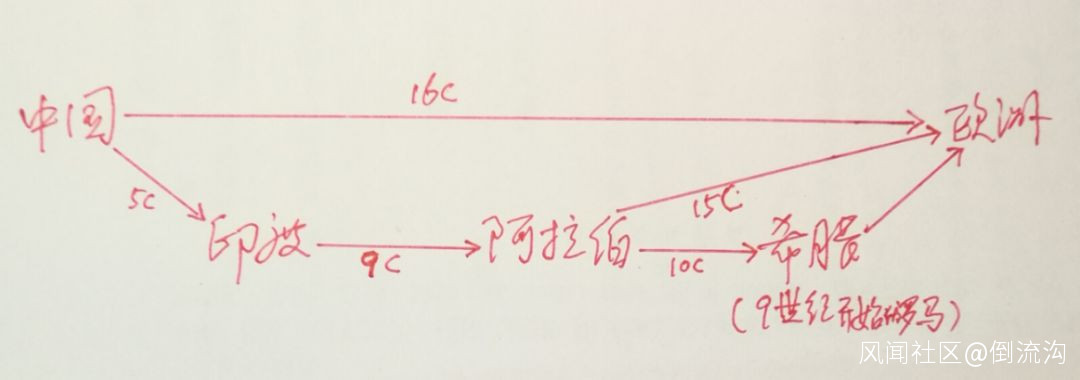 16C
中国
欧洲
5C
15C
印波
9C
阿拉伯
10C
希腊
(9世纪开始的罗马)
风闻社区@倒流沟